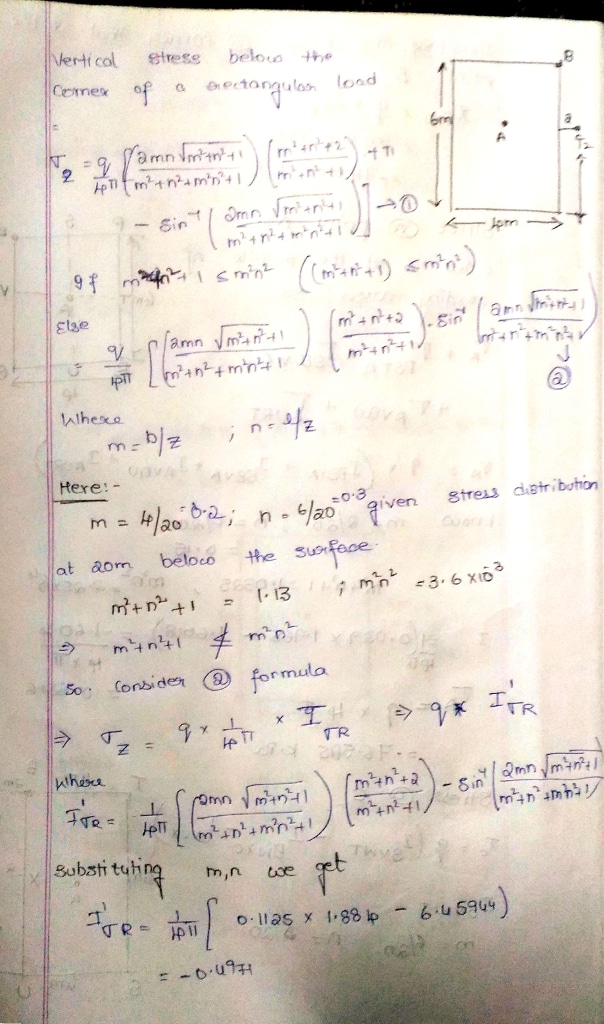 Vertical stress below the
corner of a rectangular load
=
σz = q/4π [(2mn √m²+n²+1 / m²+n²+m²n²+1) (m²+n²+2 / m²+n²+1) + π
- sin⁻¹ (2mn √m²+n²+1 / m²+n²+m²n²+1)] → ①
If m²+n²+1 ≤ m²n² ((m²+n²+1) ≤ m²n²)
Else
= q/4π [(2mn √m²+n²+1 / m²+n²+m²n²+1) (m²+n²+2 / m²+n²+1) - sin⁻¹ (2mn √m²+n²+1 / m²+n²+m²n²+1)
↓
②
Where
m = b/z ; n = l/z
Here:-
m = 4/20 = 0.2 ; n = 6/20 = 0.3 given stress distribution
at 20m below the surface.
m²+n²+1 = 1.13 ; m²n² = 3.6 x10⁻³
⇒ m²+n²+1 ≰ m²n²
so. Consider ② formula
⇒ σz = q x 1/4π x IσR ⇒ q x I'σR
Where
I'σR = 1/4π [(2mn √m²+n²+1 / m²+n²+m²n²+1) (m²+n²+2 / m²+n²+1) - sin⁻¹ (2mn √m²+n²+1 / m²+n²+m²n²+1)
substituting m,n we get
I'σR = 1/4π [ 0.1125 x 1.884 - 6.45944)
= -0.4971
B
6m
A
2
4m